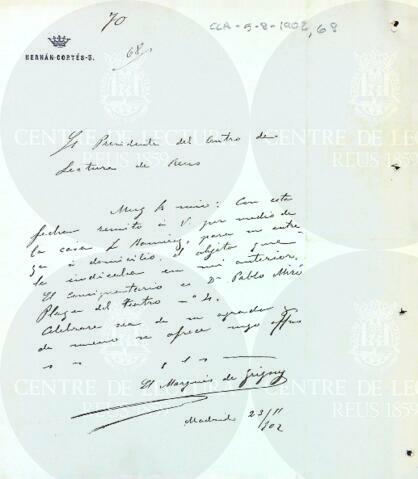 70
CCR-5-8-1902, 68
68
HERNÁN-CORTÉS-3.
Sr Presidente del Centro de
Lectura de Reus
Muy Sr mio: Con esta
fecha remito à V. por medio de
la casa para su entre
ga à domicilio, el objeto que
le indicaba en mi anterior.
El Consignatario es Dn Pablo Miró
Plaza del Teatro - nº 4.
Celebraré sea de su agrado y
de nuevo se ofrece suyo affmo
s s
El Marqués de Grigny
Madrid 23/11
902
CENTRE DE LECTURA
REUS 1859
CENTRE DE LECTURA
REUS 1859